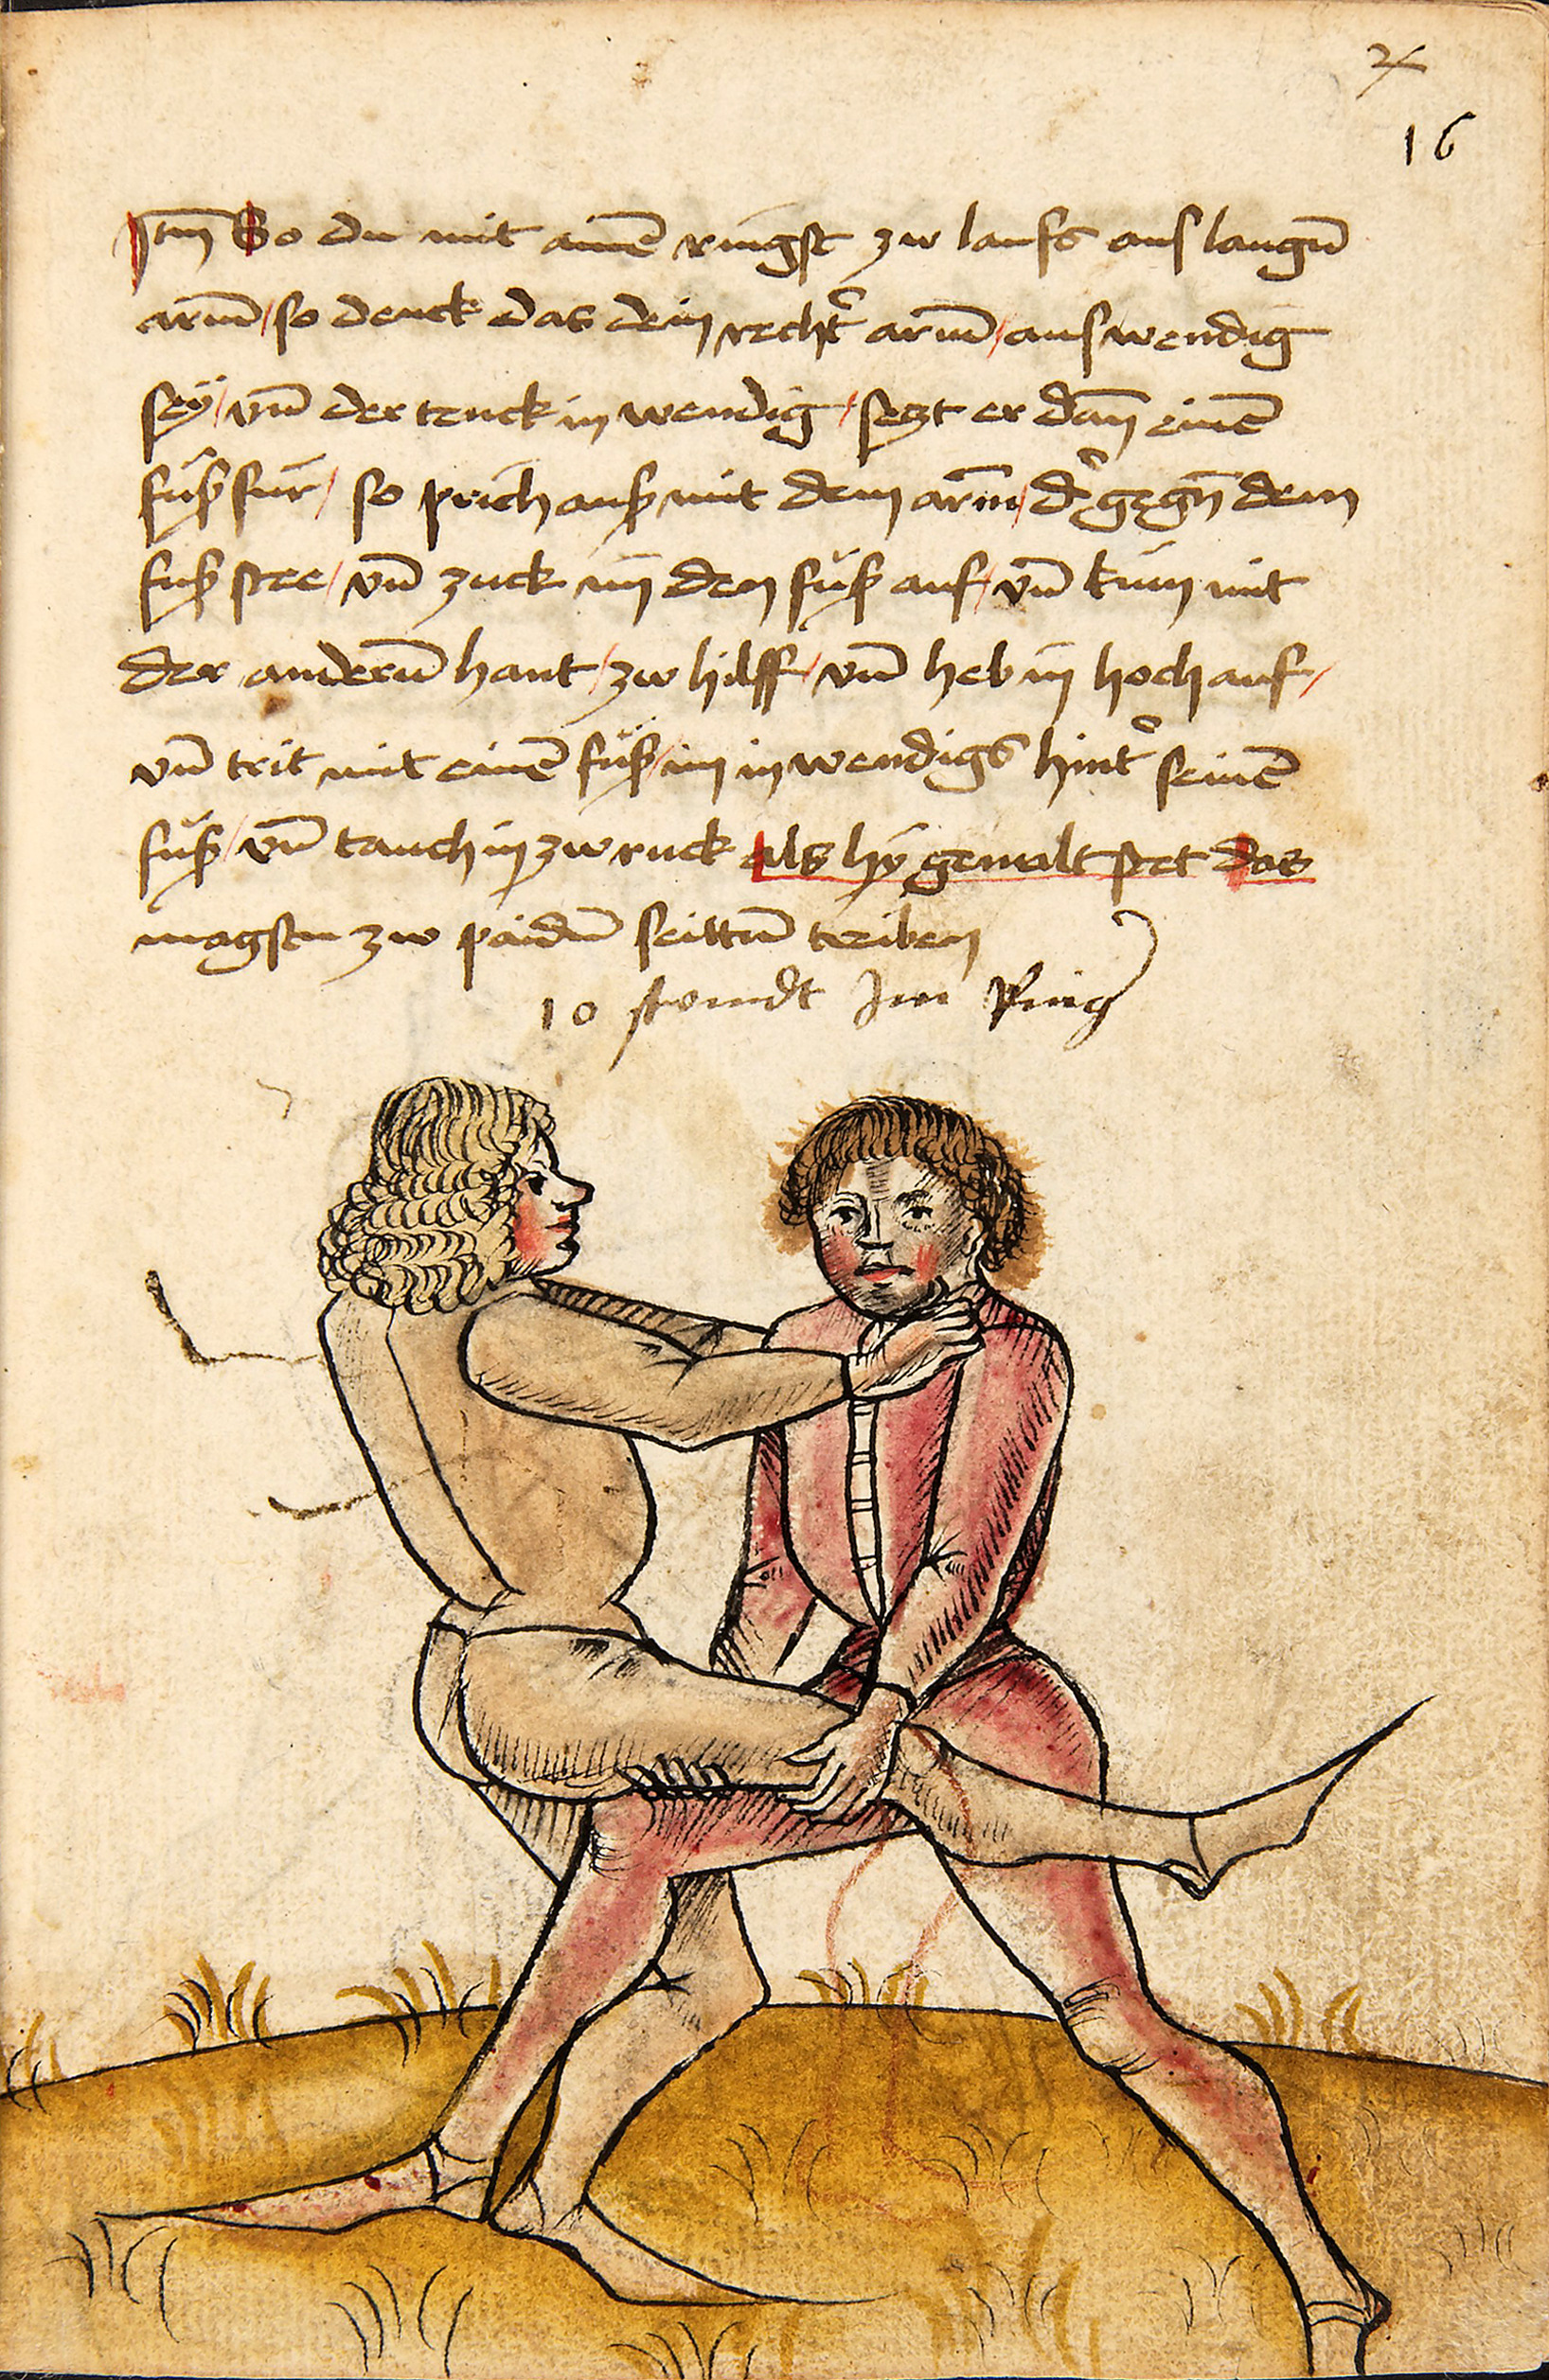 16
Itm̄ So du mit ainē ringst zw laufs aus langn̄
arm̄ / so denck das dein recht̉ arm̄ / auswendig
seÿ / vn̄ der tenck in wendig / sezt er dan̄ einē
fuß für / so prich auß mit dem arm̄ / d̉ gegn̄ dem
fuß stee / vn̄ zuck im den fuß auf / vn̄ kum mit
der andern̄ hant / zw hilff / vn̄ heb in hoch auf /
vn̄ trit mit einē füß / im in wendigs hint̉ seinē
füß / vn̄ tauch in zw ruck als hÿ gemalt stet das
magstu zw paidn̄ seittn̄ treiben
10 stundt Im Ring